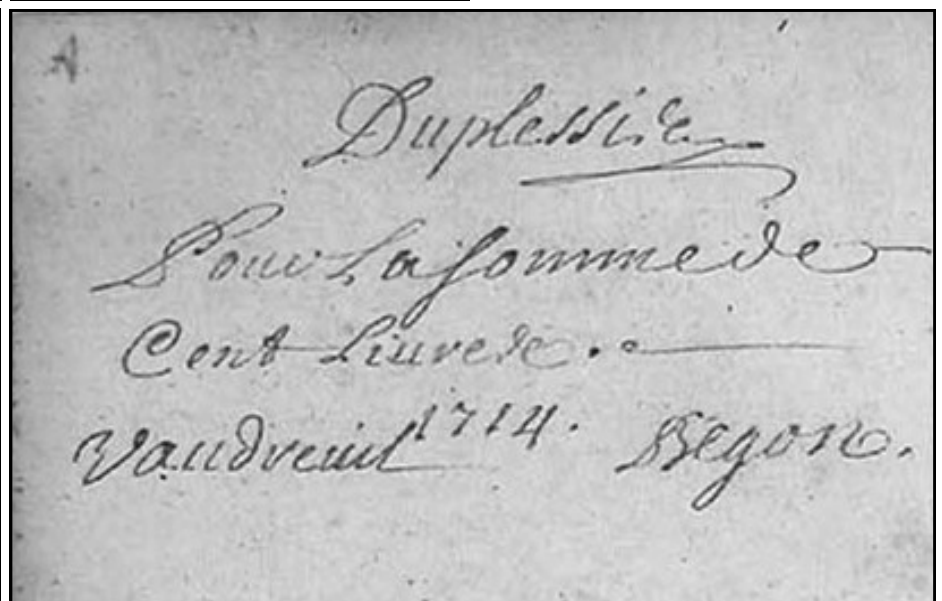 A
Duplessis
Pour La Somme de
Cent Livres.
Vaudreuil 1714. Begon.